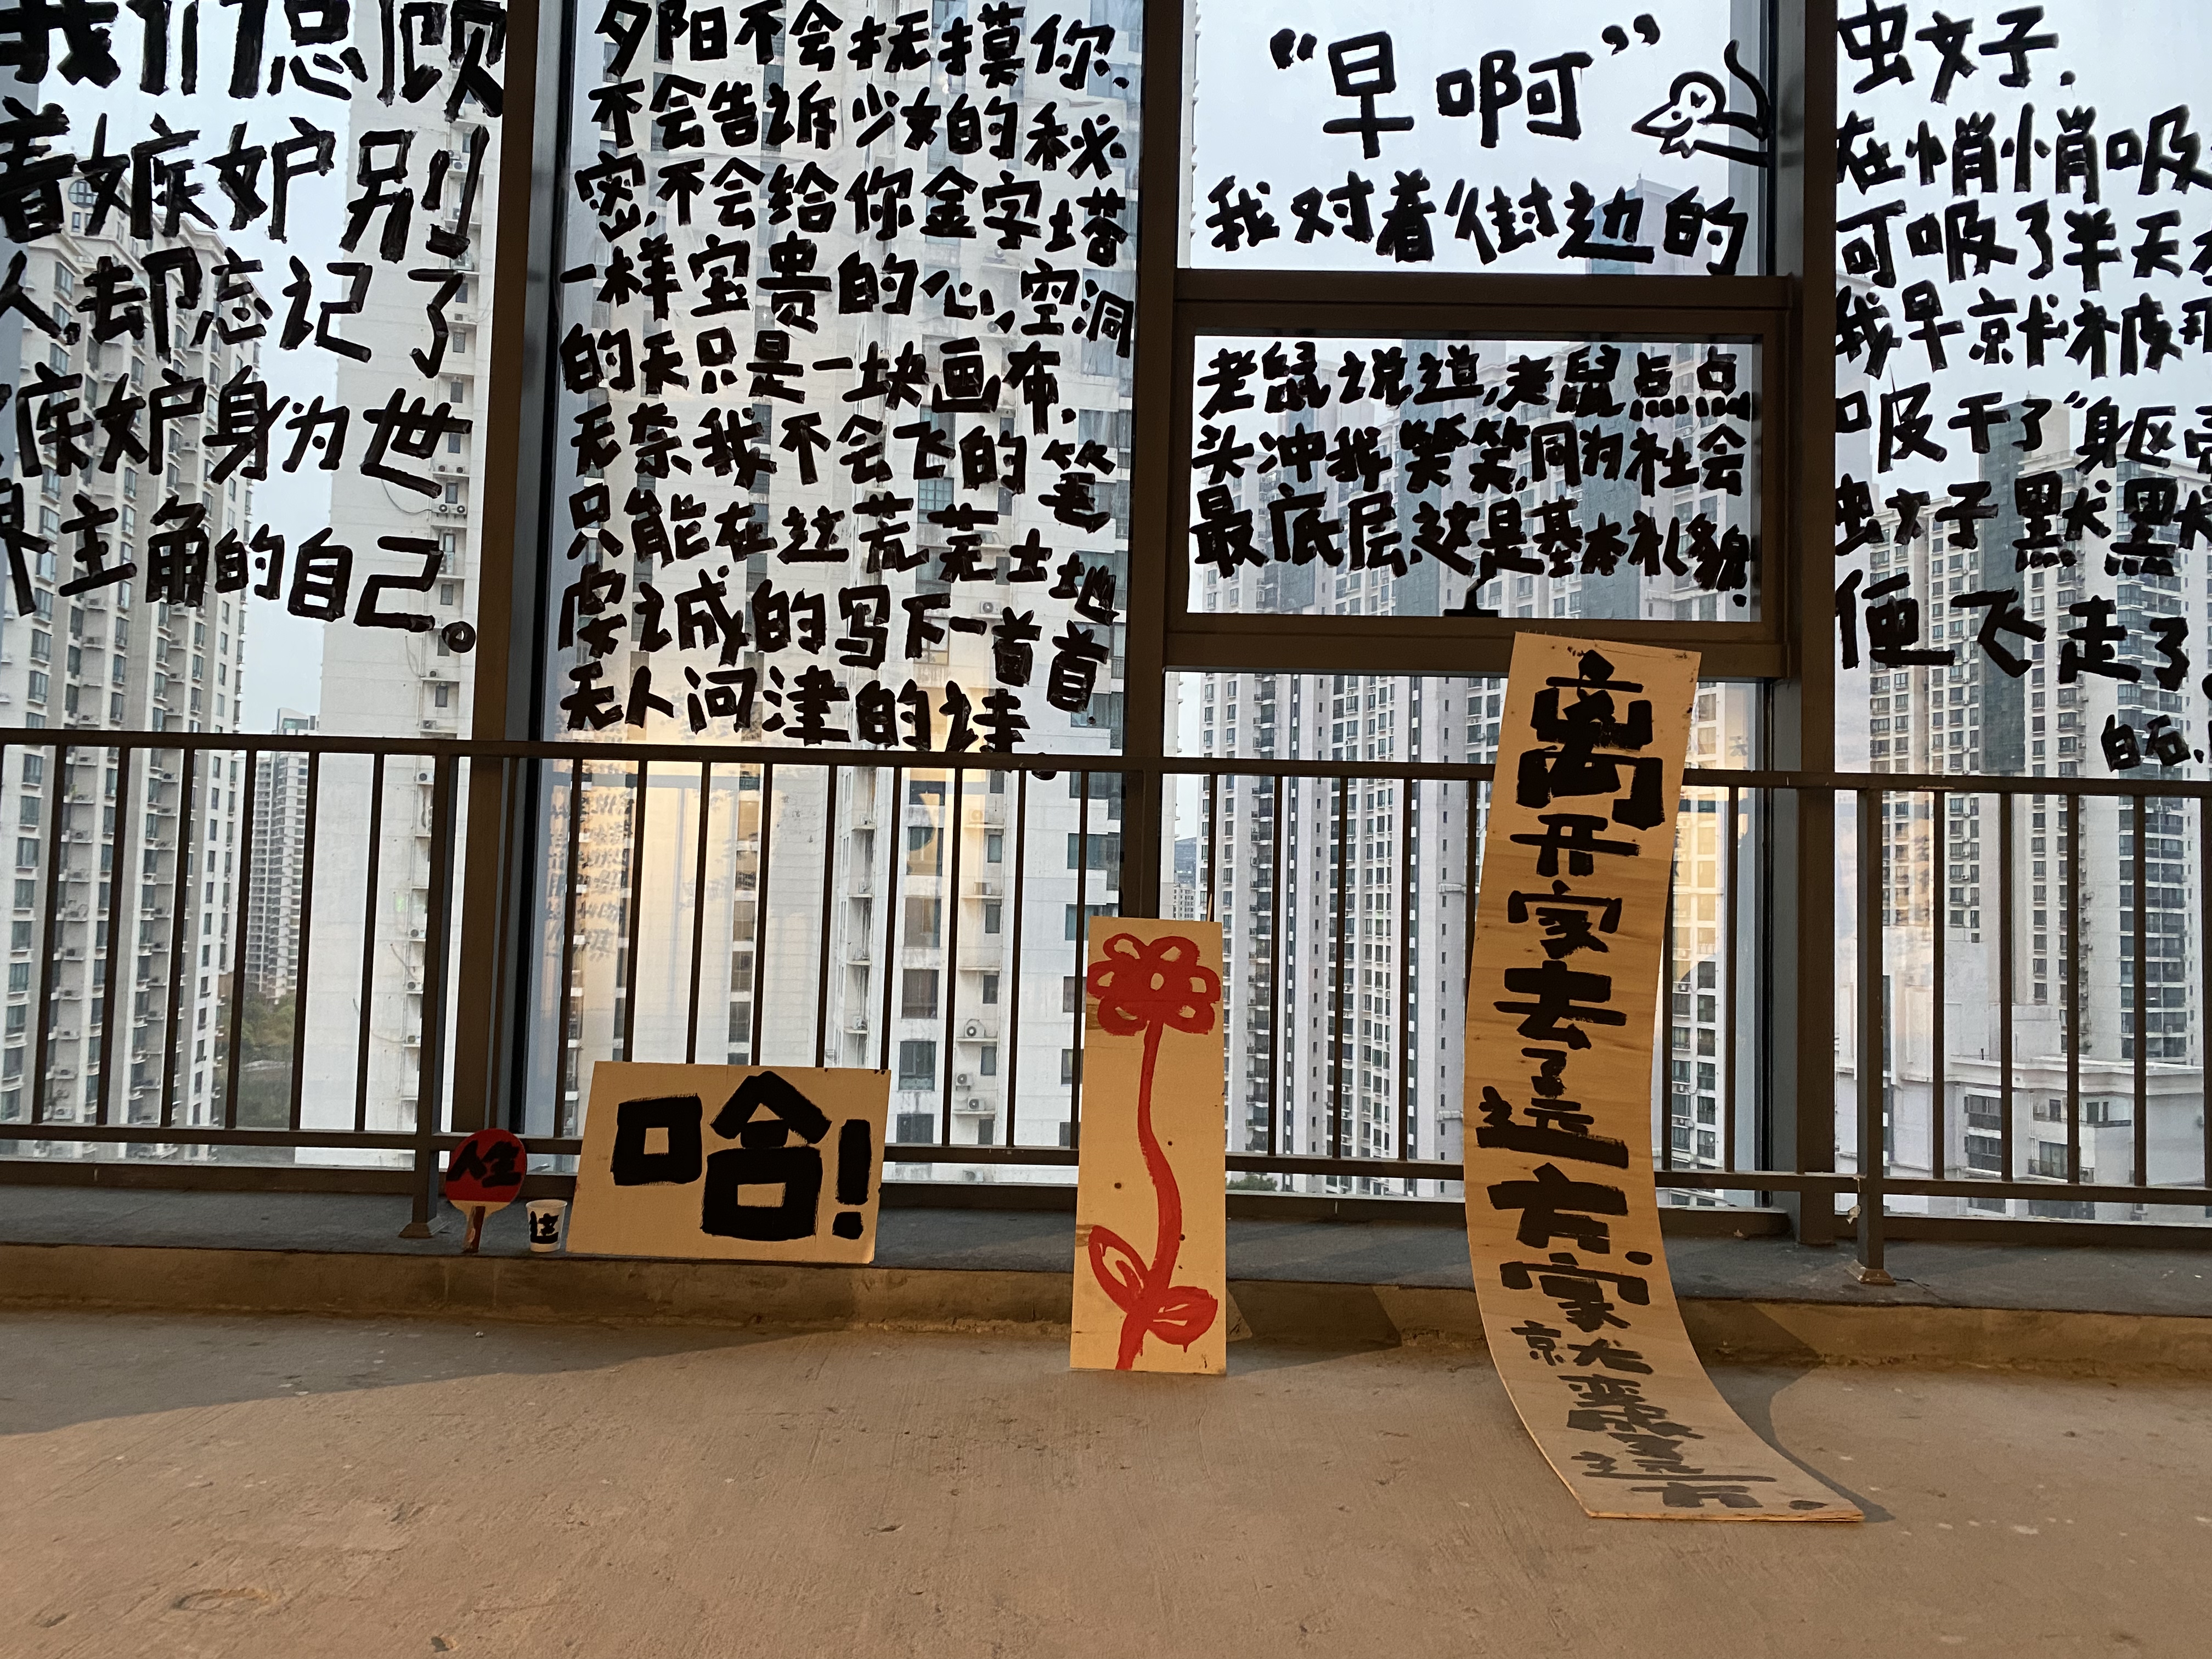 我们总顾
着嫉妒别
人,却忘记了
嫉妒身为世
界主角的自己。
夕阳不会抚摸你,
不会告诉少女的秘
密,不会给你金字塔
一样宝贵的心,空洞
的天只是一块画布,
无奈我不会飞的笔,
只能在这荒芜土地
虔诚的写下一首首
无人问津的诗。
“早啊”
我对着街边的
老鼠说道,老鼠点点
头冲我笑笑,同为社会
最底层,这是基本礼貌.
蚊子,
在悄悄吸
可吸了半天
我早就被那
吸干了“身躯壳
蚊子默默
便飞走了。
白石.
人生
哈!
离开家去了远方.家就变成了远方.